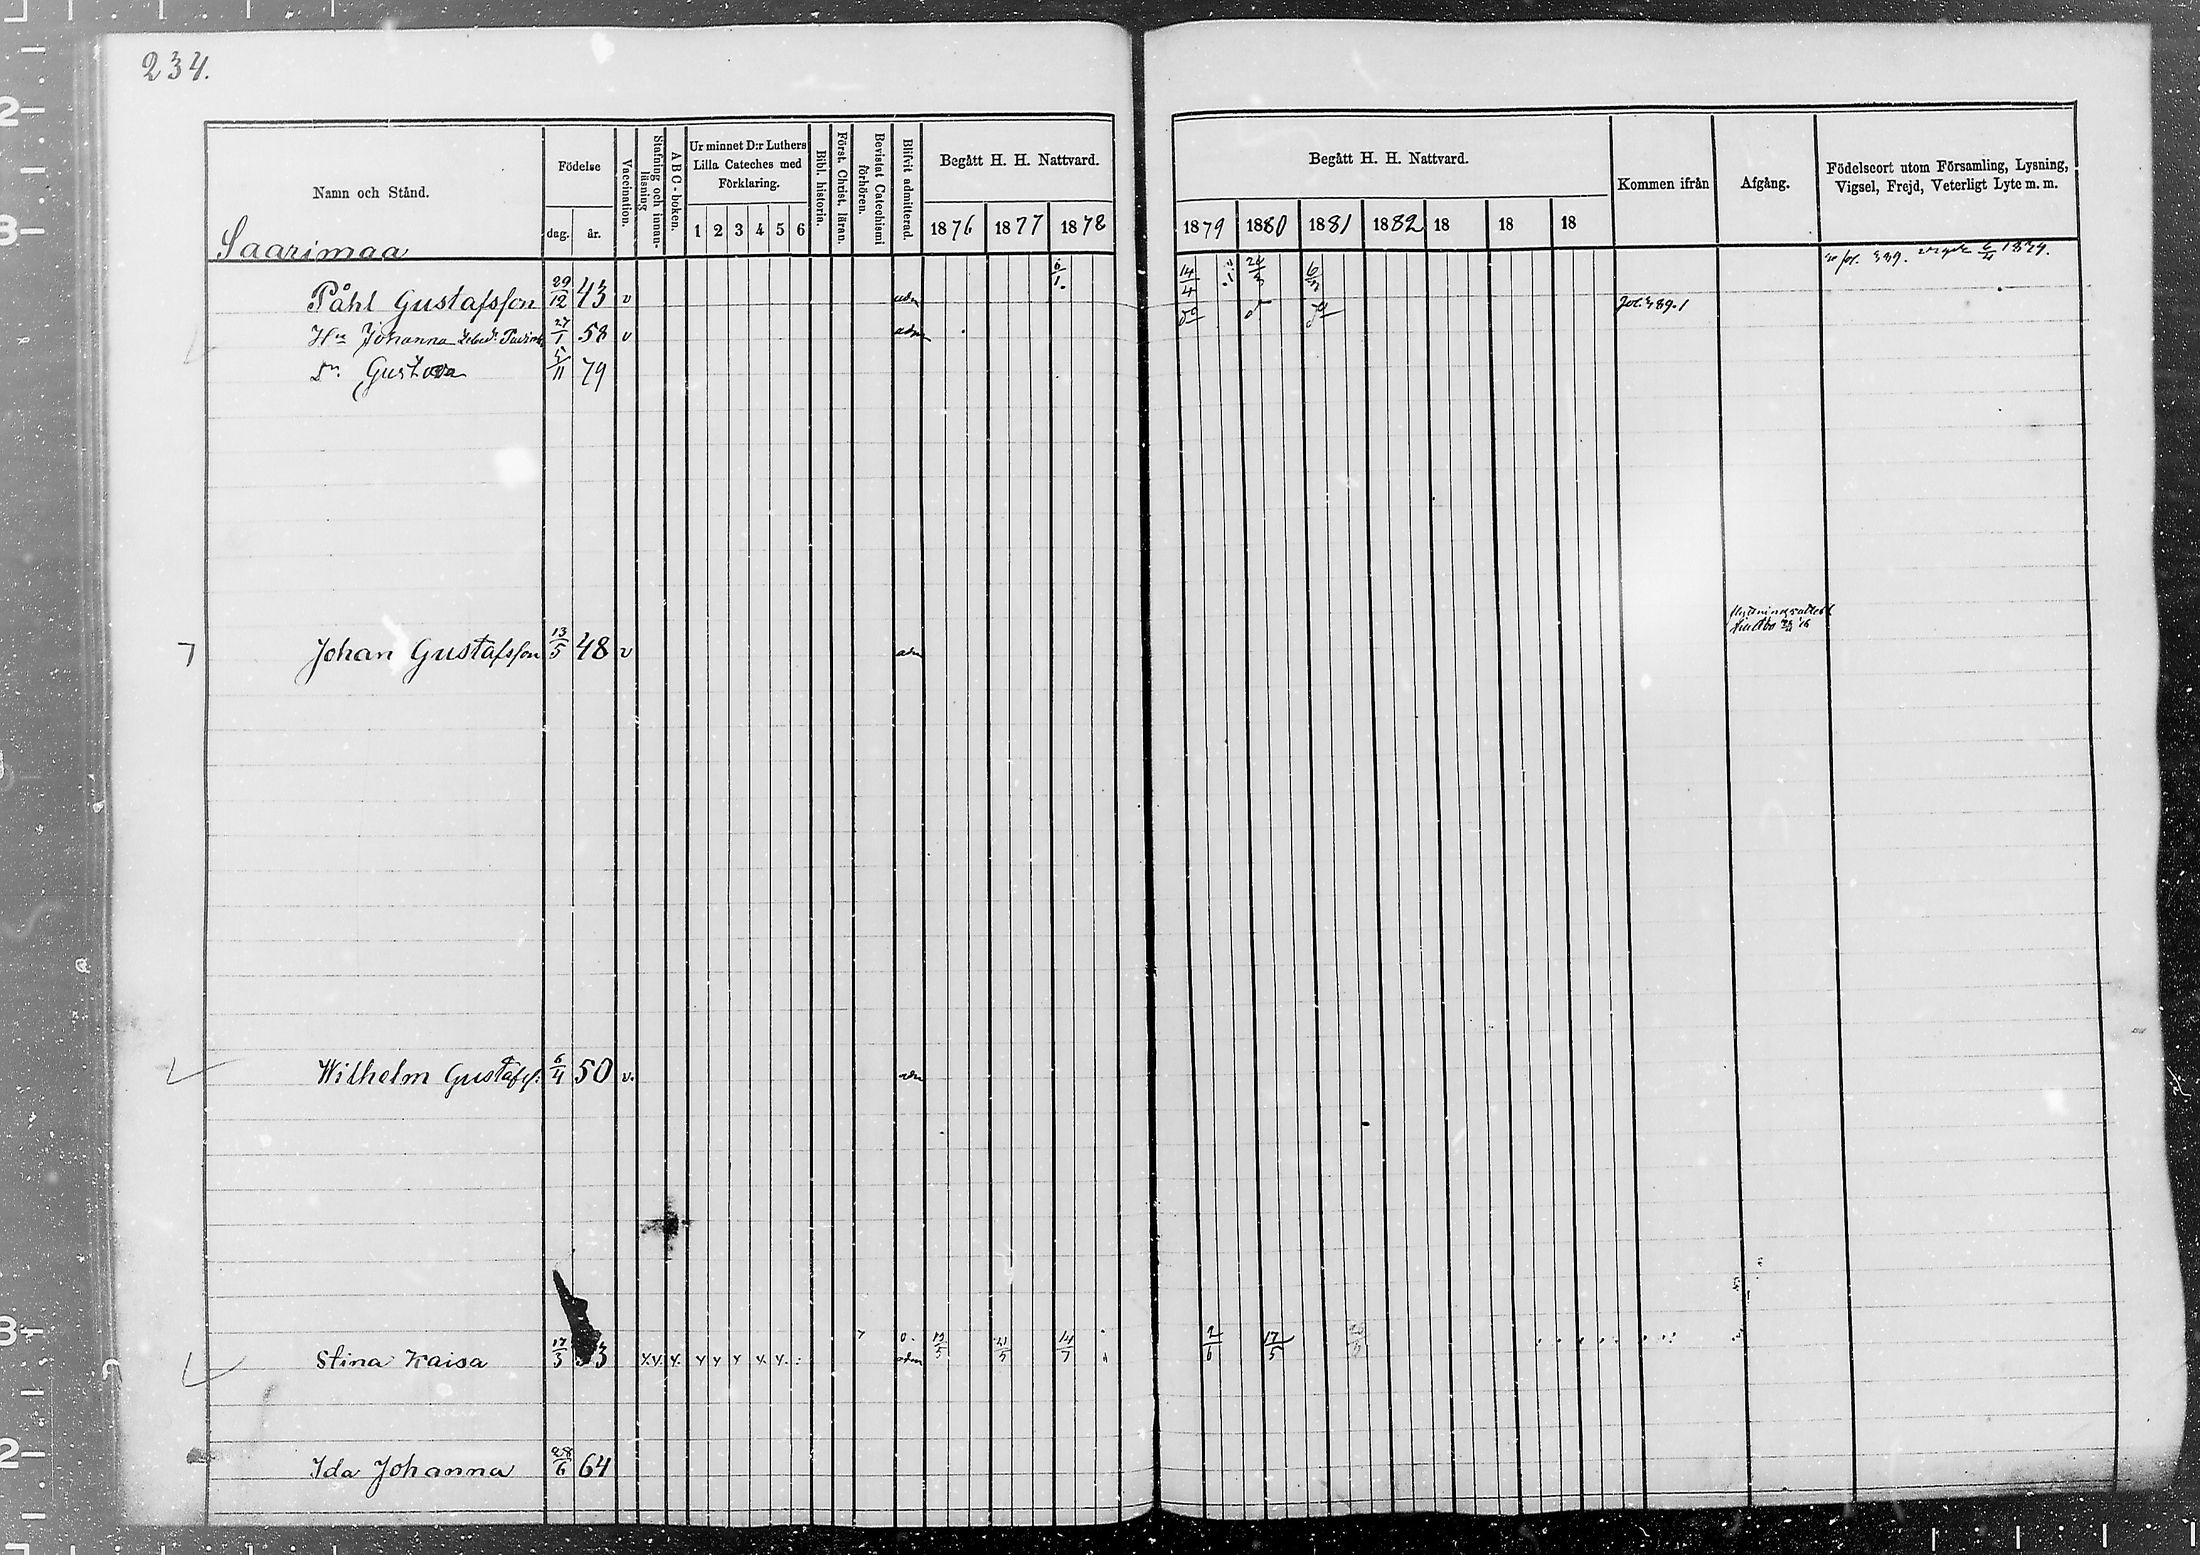 234.
Namn och Stånd.
Födelse
dag. år.
Vaccination.
Stafning och innanläsning
A B C - boken.
Ur minnet D:r Luthers Lilla Cateches med Förklaring.
1 2 3 4 5 6
Bibl. historia.
Först. Christ. läran.
Bevistat Catechismi förhören.
Blifvit admitterad.
Begått H. H. Nattvard.
1876 1877 1878
Begått H. H. Nattvard.
1879 1880 1881 1882 18 18 18
Kommen ifrån
Afgång.
Födelseort utom Församling, Lysning, Vigsel, Frejd, Veterligt Lyte m. m.
Saarimaa
Påhl Gustafsson 29/12 43 v adm 6/1 14/4
Hu Johanna 27/1 58 v adm
Dr. Gustava 5/11 79
Johan Gustafsson 13/5 48 v adm
Wilhelm Gustafss: 6/4 50 v. adm
Stina Kaisa 17/3 53 adm 14/7 2/6 17/5
Ida Johanna 28/6 64